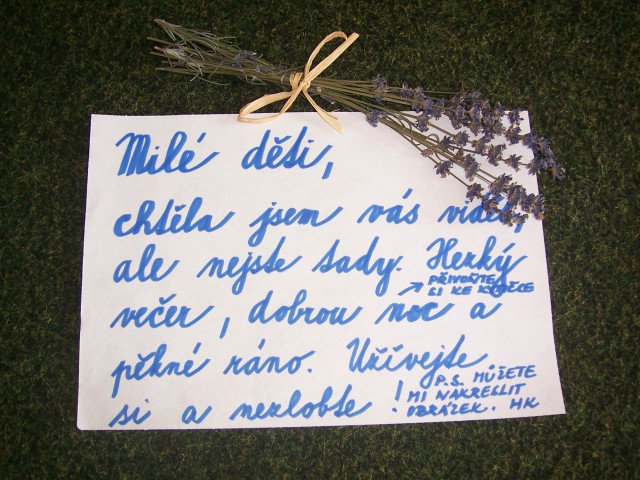 Milé děti,
chtěla jsem vás vidět,
ale nejste tady. Hezký
PŘIVOŇTE
SI KE KYTIČCE
večer, dobrou noc a
pěkné ráno. Užívejte
si a nezlobte!
P.S. MŮŽETE
MI NAKRESLIT
OBRÁZEK. MK